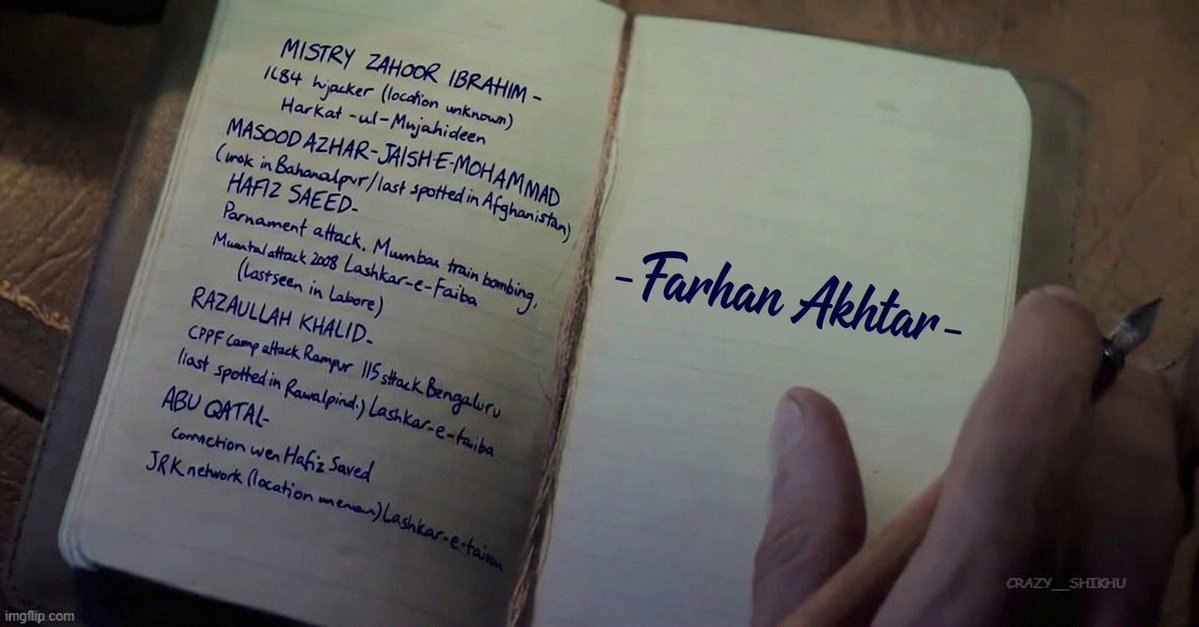 MISTRY ZAHOOR IBRAHIM -
IC84 hijacker (location unknown)
Harkat-ul-Mujahideen
MASOOD AZHAR-JAISH-E-MOHAMMAD
(wok in Bahanalpur/last spotted in Afghanistan)
HAFIZ SAEED-
Parnament attack, Mumbai train bombing,
attack 2008 Lashkar-e-Faiba
(last seen in Labore)
RAZAULLAH KHALID-
CPPF Camp attack Rampur 115 sttack Bengaluru
(iast spotted in Rawalpind.) Lashkar-e-taiba
ABU QATAL-
connction wen Hafiz Saved
JRK network (location) Lashkar-e-
-Farhan Akhtar-
CRAZY__SHIKHU
imgflip.com